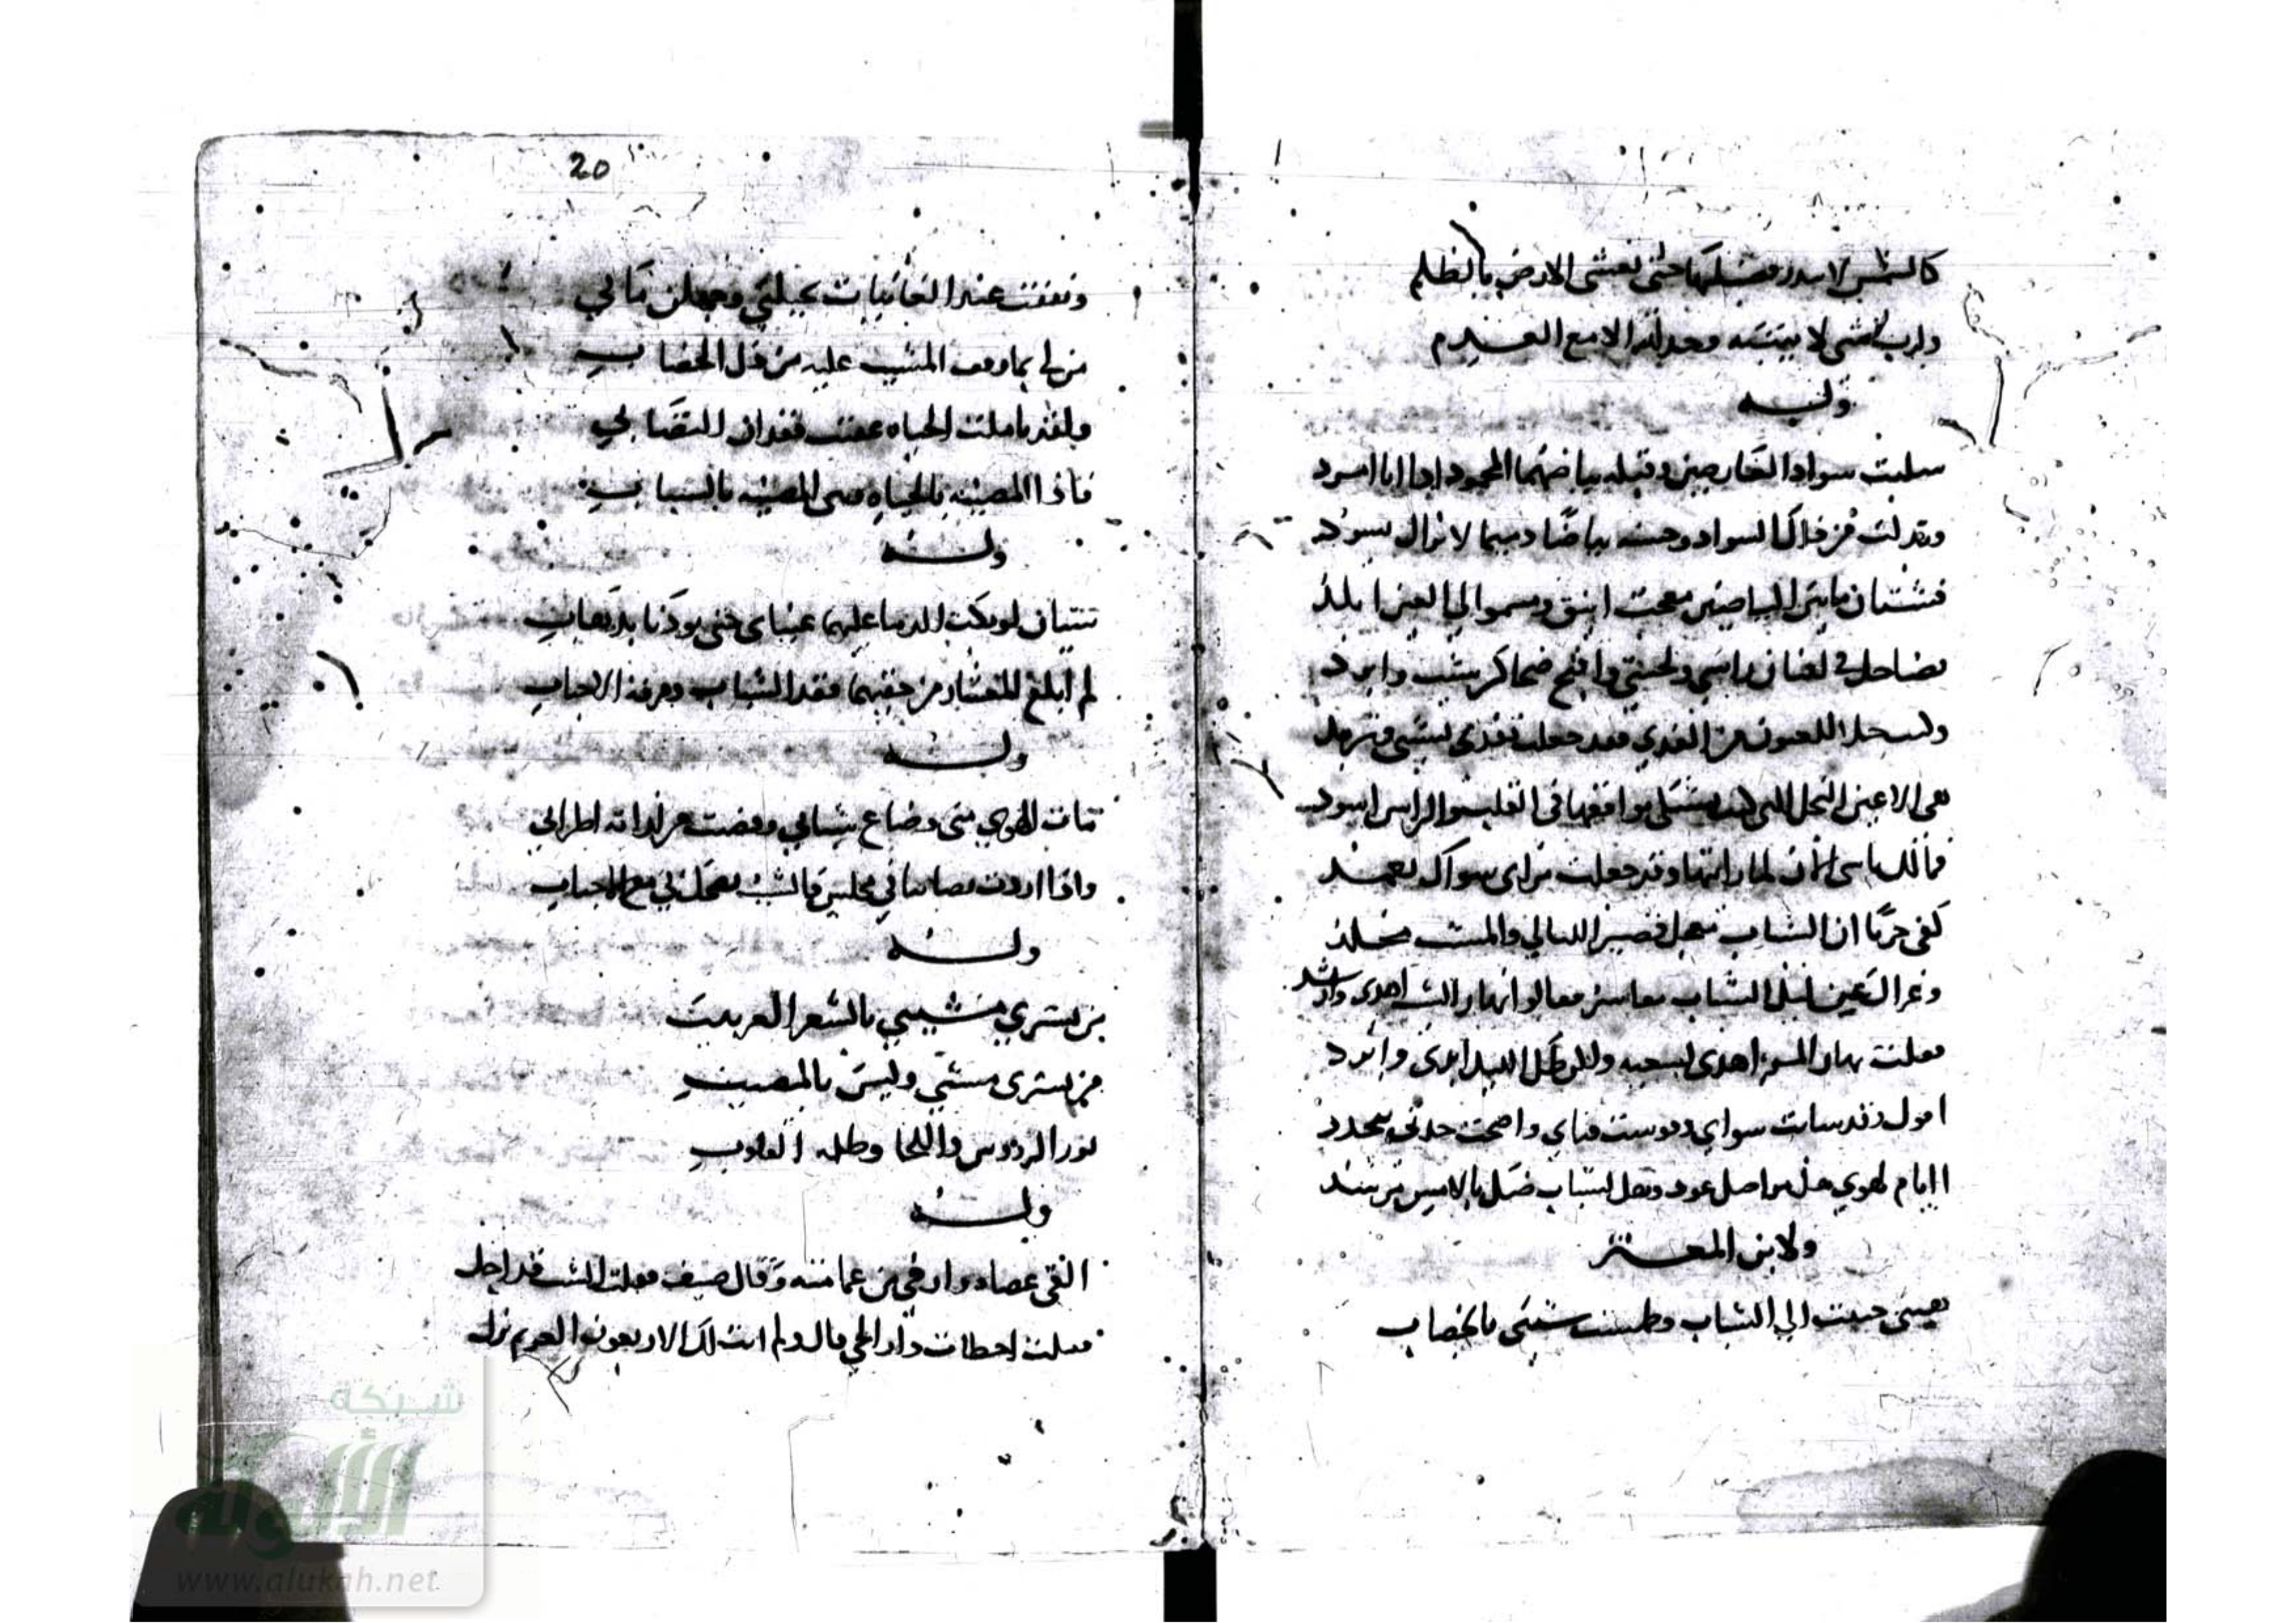 كالشمس لا تبدو فضيلتها حتى تغشى الارض بالظلم
ولرب شي لا يبينه وجدانه الا مع العدم
وله
سلبت سواد العارضين وقبله بياضهما المحمود اذا انا امرد
وبدلت من ذاك السواد وحسنه بياضا ذميما لا يزال يسود
فشتان ما بين البياضين معجب انيق ومسموم الى العين
تضاحك في افنان راسي ولحيتي واقبح ضحاكين شيب وادرد
هي الاعين النجل التي كنت تشتكي مواقعها في القلب والراس اسود
فمالك تاسى الان لما رايتها وقد جعلت مرمى سواك تعمد
كفى حزنا ان الشباب معجل قصير الليالي والمشيب مخلد
وعزاك عن ليل الشباب معاشر فقالوا نهار الشيب اهدى وارشد
فقلت نهار المرء اهدى لسعيه ولكن ظل الليل اندى وابرد
اقول وقد شابت شواتي وقوست قناتي واضحت كدنتي تتخدد
ايام لهوي هل مواضيك عود وهل لشباب ضل بالامس منشد
ولابن المعتز
نفسي حبيت الى الشباب وطمست شيبي بالخضاب
20
ونفقت عند الغانيات بحيلتي وجهلن ما بي
من لي بما وقف المشيب عليه من ذل الخضاب
ولقد تاملت الحياة عقيب فقدان التصابي
فاذا المصيبة بالحياة هي المصيبة بالشباب
وله
شيئان لو بكت الدما عليهما عيناي حتى يوذنا بذهاب
لم ابلغ المعشار من حقيهما فقد الشباب وفرقة الاحباب
وله
مات الهوى مني وضاع شبابي وقضيت من لذاته اطرابي
واذا اردت تصابيا في مجلس فالشيب يضحك بي مع الاحباب
وله
من يشتري مشيبي بالشعر الغربيب
من يشتري مشيبي وليس بالمصيب
نور الرؤوس واللحا وظلمة القلوب
وله
القى عصاه وارخى من عمامته وقال ضيف فقلت الشيب قد اجل
فقلت اخطات دار الحي قال ولم اتت لك الاربعون الغر ثم نزل
شبكة
الألوكة
www.alukah.net